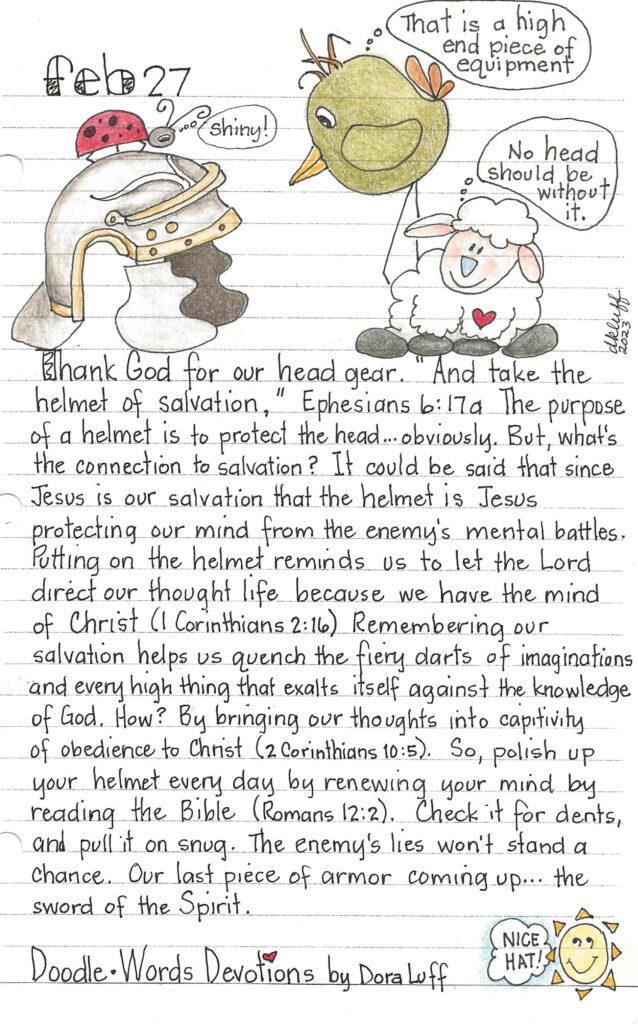 feb 27
shiny!
That is a high
end piece of
equipment
No head
should be
without
it.
dkluff
2023
Thank God for our head gear. "And take the
helmet of salvation," Ephesians 6:17a The purpose
of a helmet is to protect the head...obviously. But, what's
the connection to salvation? It could be said that since
Jesus is our salvation that the helmet is Jesus
protecting our mind from the enemy's mental battles.
Putting on the helmet reminds us to let the Lord
direct our thought life because we have the mind
of Christ (1 Corinthians 2:16) Remembering our
salvation helps us quench the fiery darts of imaginations
and every high thing that exalts itself against the knowledge
of God. How? By bringing our thoughts into capitivity
of obedience to Christ (2 Corinthians 10:5). So, polish up
your helmet every day by renewing your mind by
reading the Bible (Romans 12:2). Check it for dents,
and pull it on snug. The enemy's lies won't stand a
chance. Our last piece of armor coming up... the
sword of the Spirit.
NICE
HAT!
Doodle•Words Devotions by Dora Luff